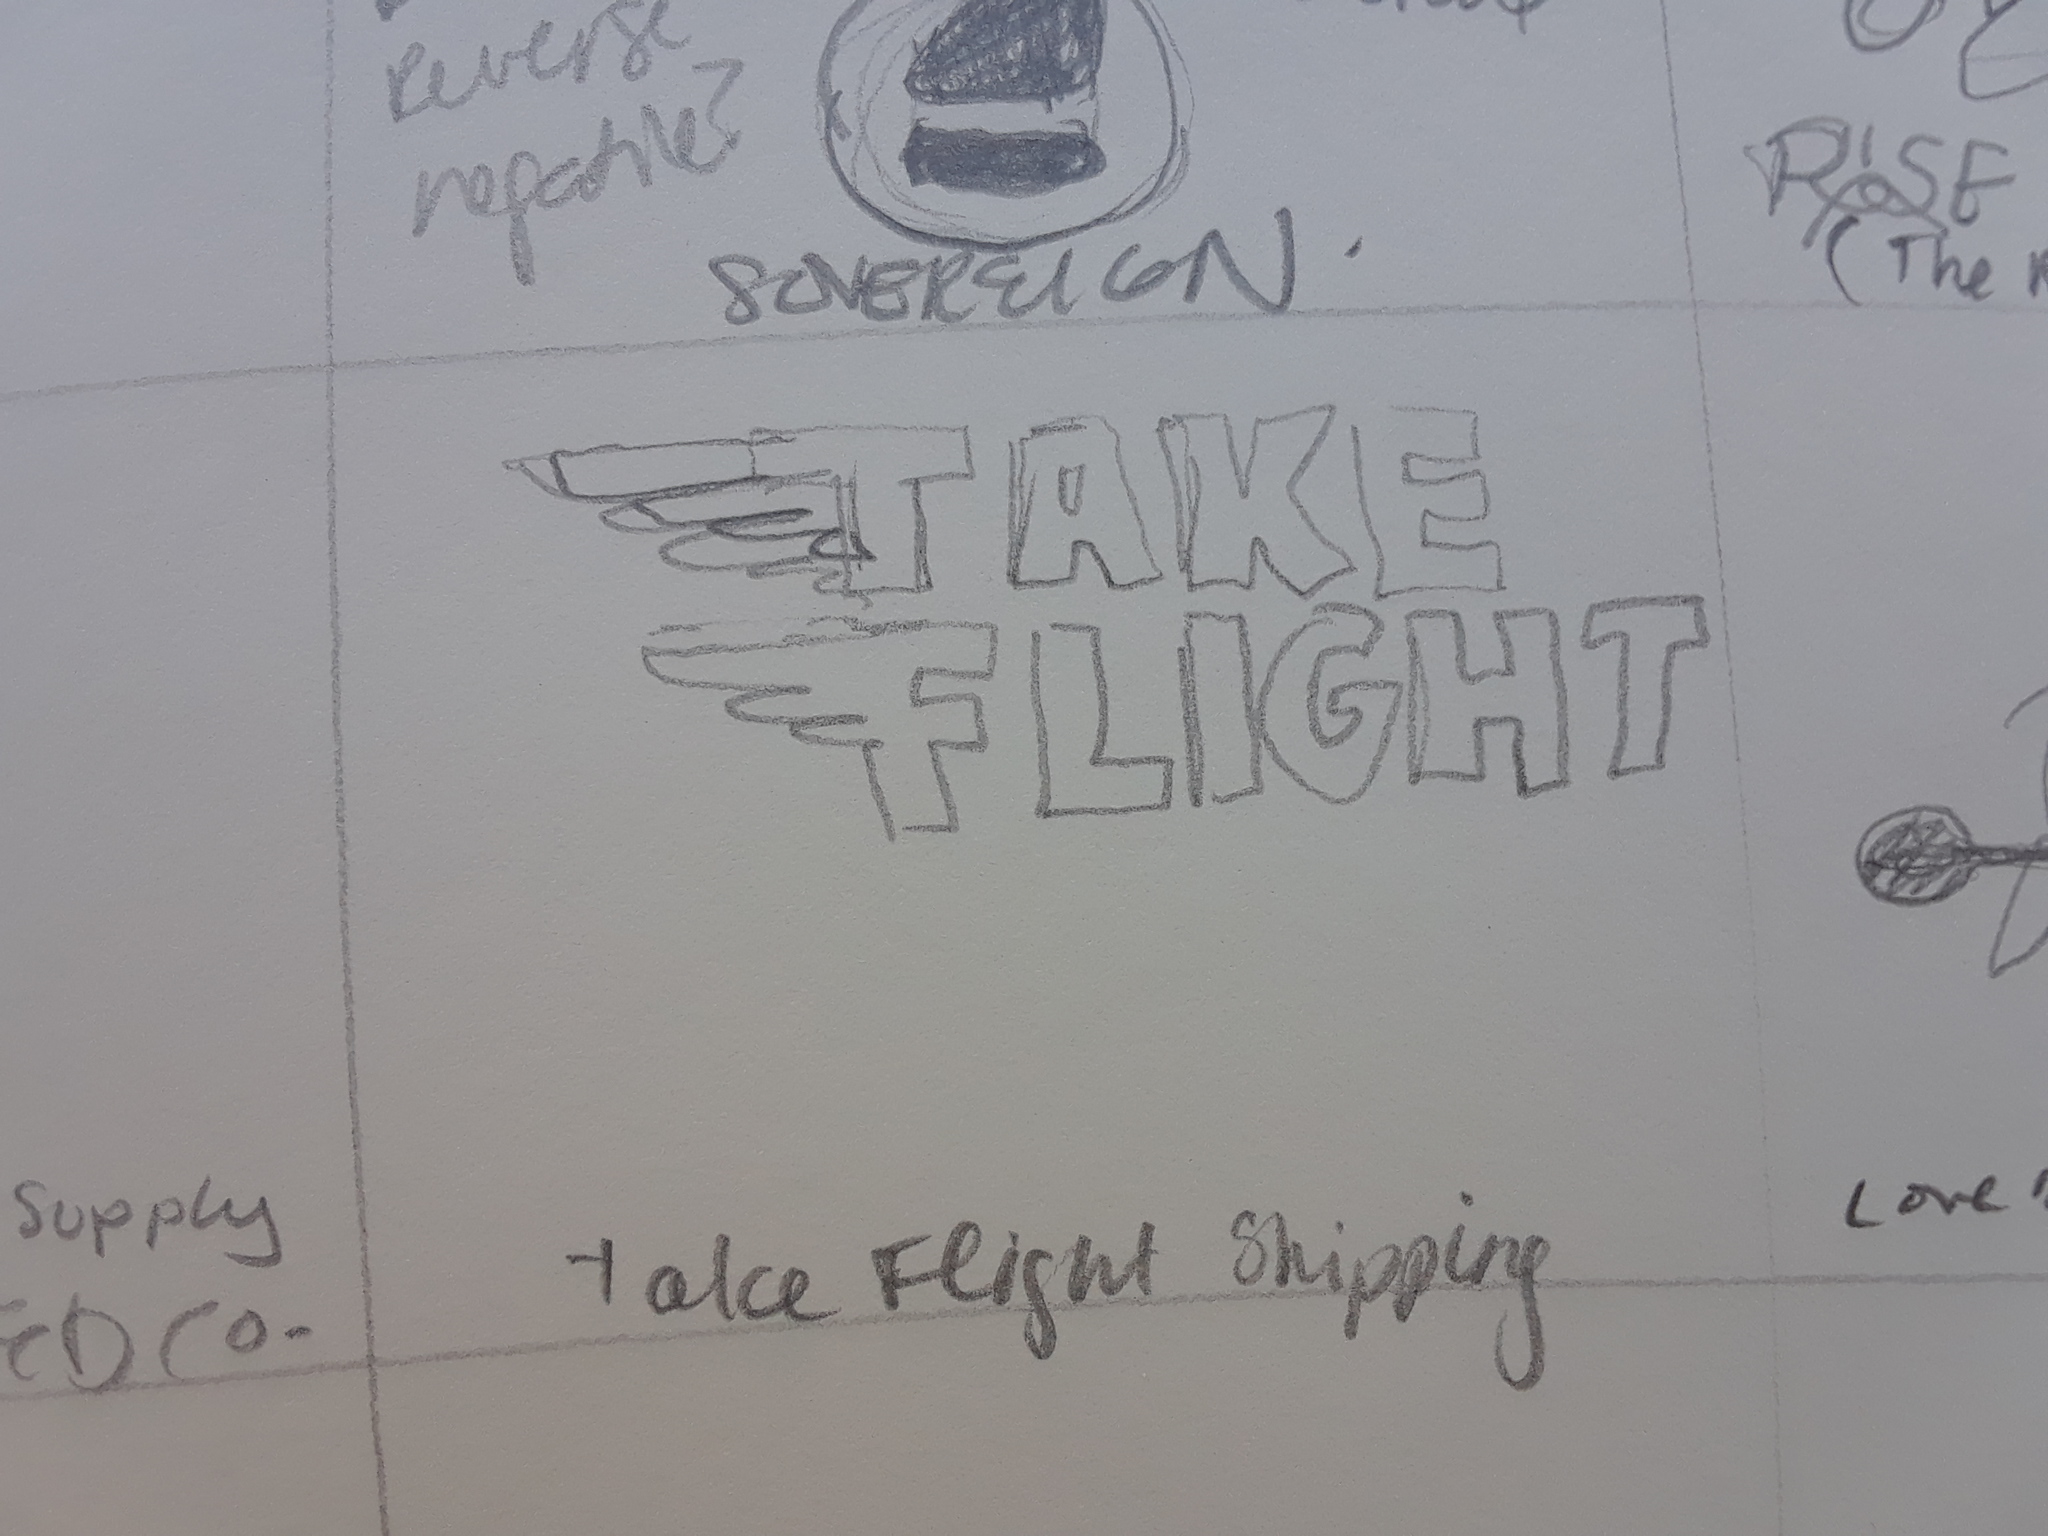 Reverse
negative?
SOVEREIGN.
RISE
(The
TAKE
FLIGHT
Supply
Take Flight Shipping
Love
CO.